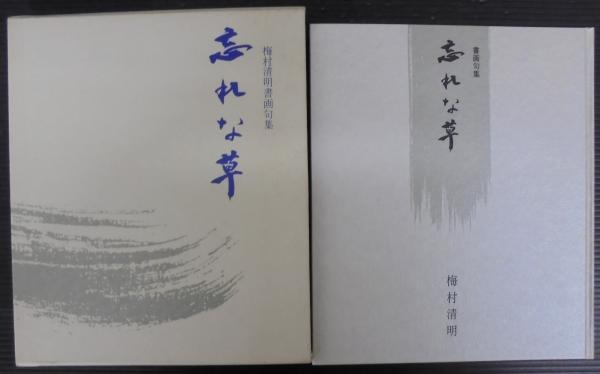 梅村清明書画句集
忘れな草
書画句集
忘れな草
梅村清明